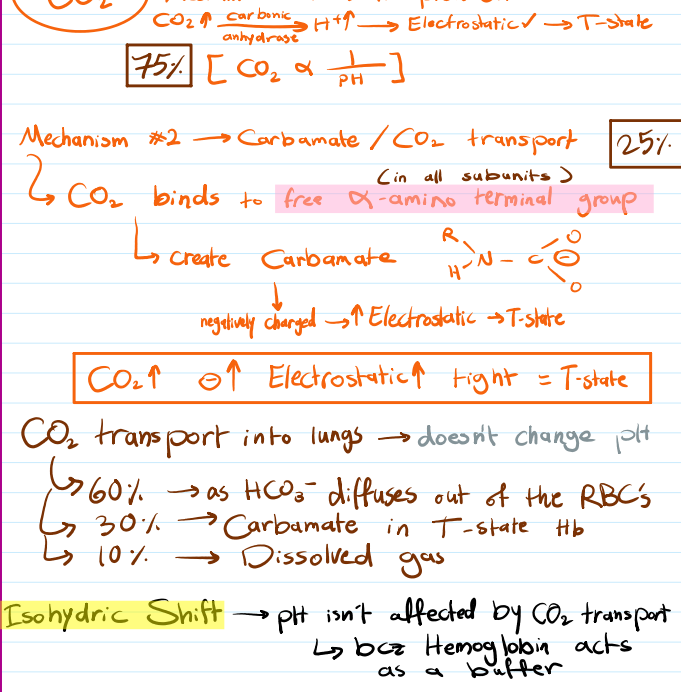 CO₂
CO₂↑ carbonic anhydrase → H⁺↑ → Electrostatic✓ → T-state
75% [ CO₂ ∝ 1/PH ]
Mechanism #2 → Carbamate / CO₂ transport 25%
(in all subunits)
CO₂ binds to free α-amino terminal group
create Carbamate R H N - C O ⊖ O
negatively charged → ↑ Electrostatic → T-state
CO₂↑ ⊖↑ Electrostatic↑ tight = T-state
CO₂ transport into lungs → doesn't change pH
60% → as HCO₃⁻ diffuses out of the RBC's
30% → Carbamate in T-state Hb
10% → Dissolved gas
Isohydric Shift → pH isn't affected by CO₂ transport
↳ bcz Hemoglobin acts
as a buffer